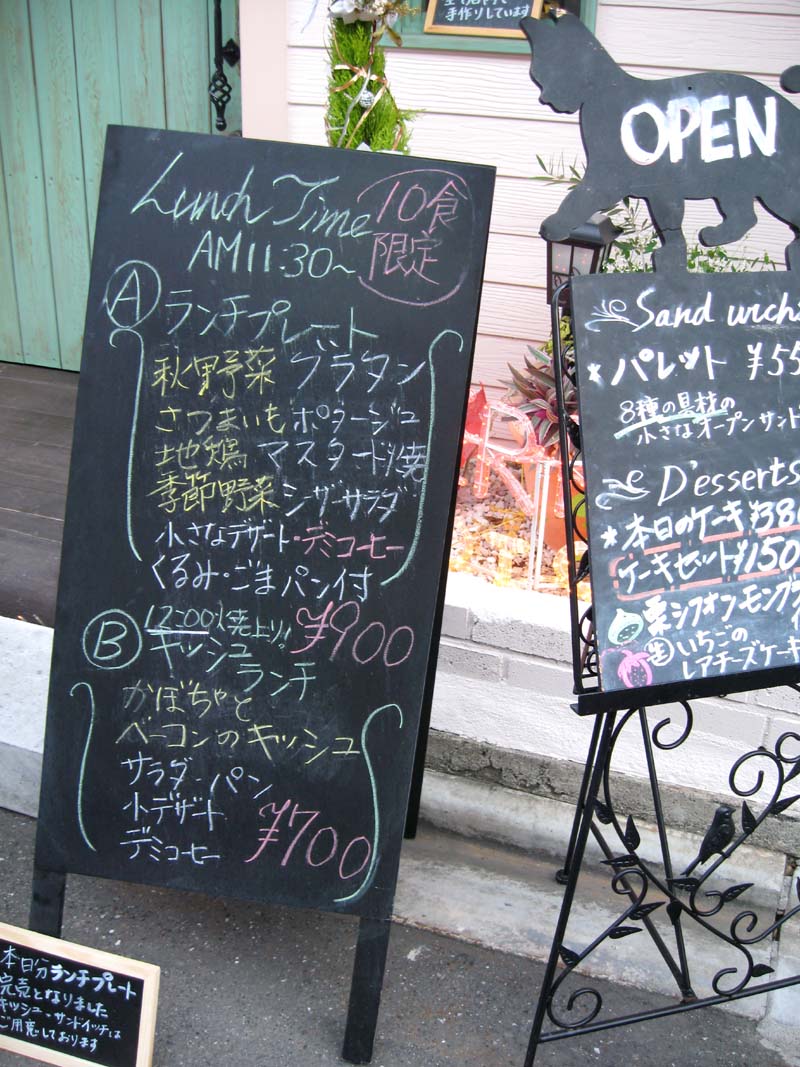 手作りしています
Lunch Time
AM11:30〜
10食
限定
Ⓐ ランチプレート
秋野菜 グラタン
さつまいも ポタージュ
地鶏 マスタード焼
季節野菜 シーザーサラダ
小さなデザート・デミコーヒー
くるみ・ごまパン付
¥900
Ⓑ 12:00焼上り!
キッシュ
ランチ
かぼちゃと
ベーコンのキッシュ
サラダ・パン
小デザート
デミコーヒー
¥700
本日分ランチプレート
完売となりました
キッシュ・サンドイッチは
ご用意しております
OPEN
Sand wich
* パレット ¥55
8種の具材の
小さなオープンサンド
D'esserts
* 本日のケーキ ¥38
ケーキセット¥150
栗シフォンモンブラ
生いちごの
レアチーズケーキ